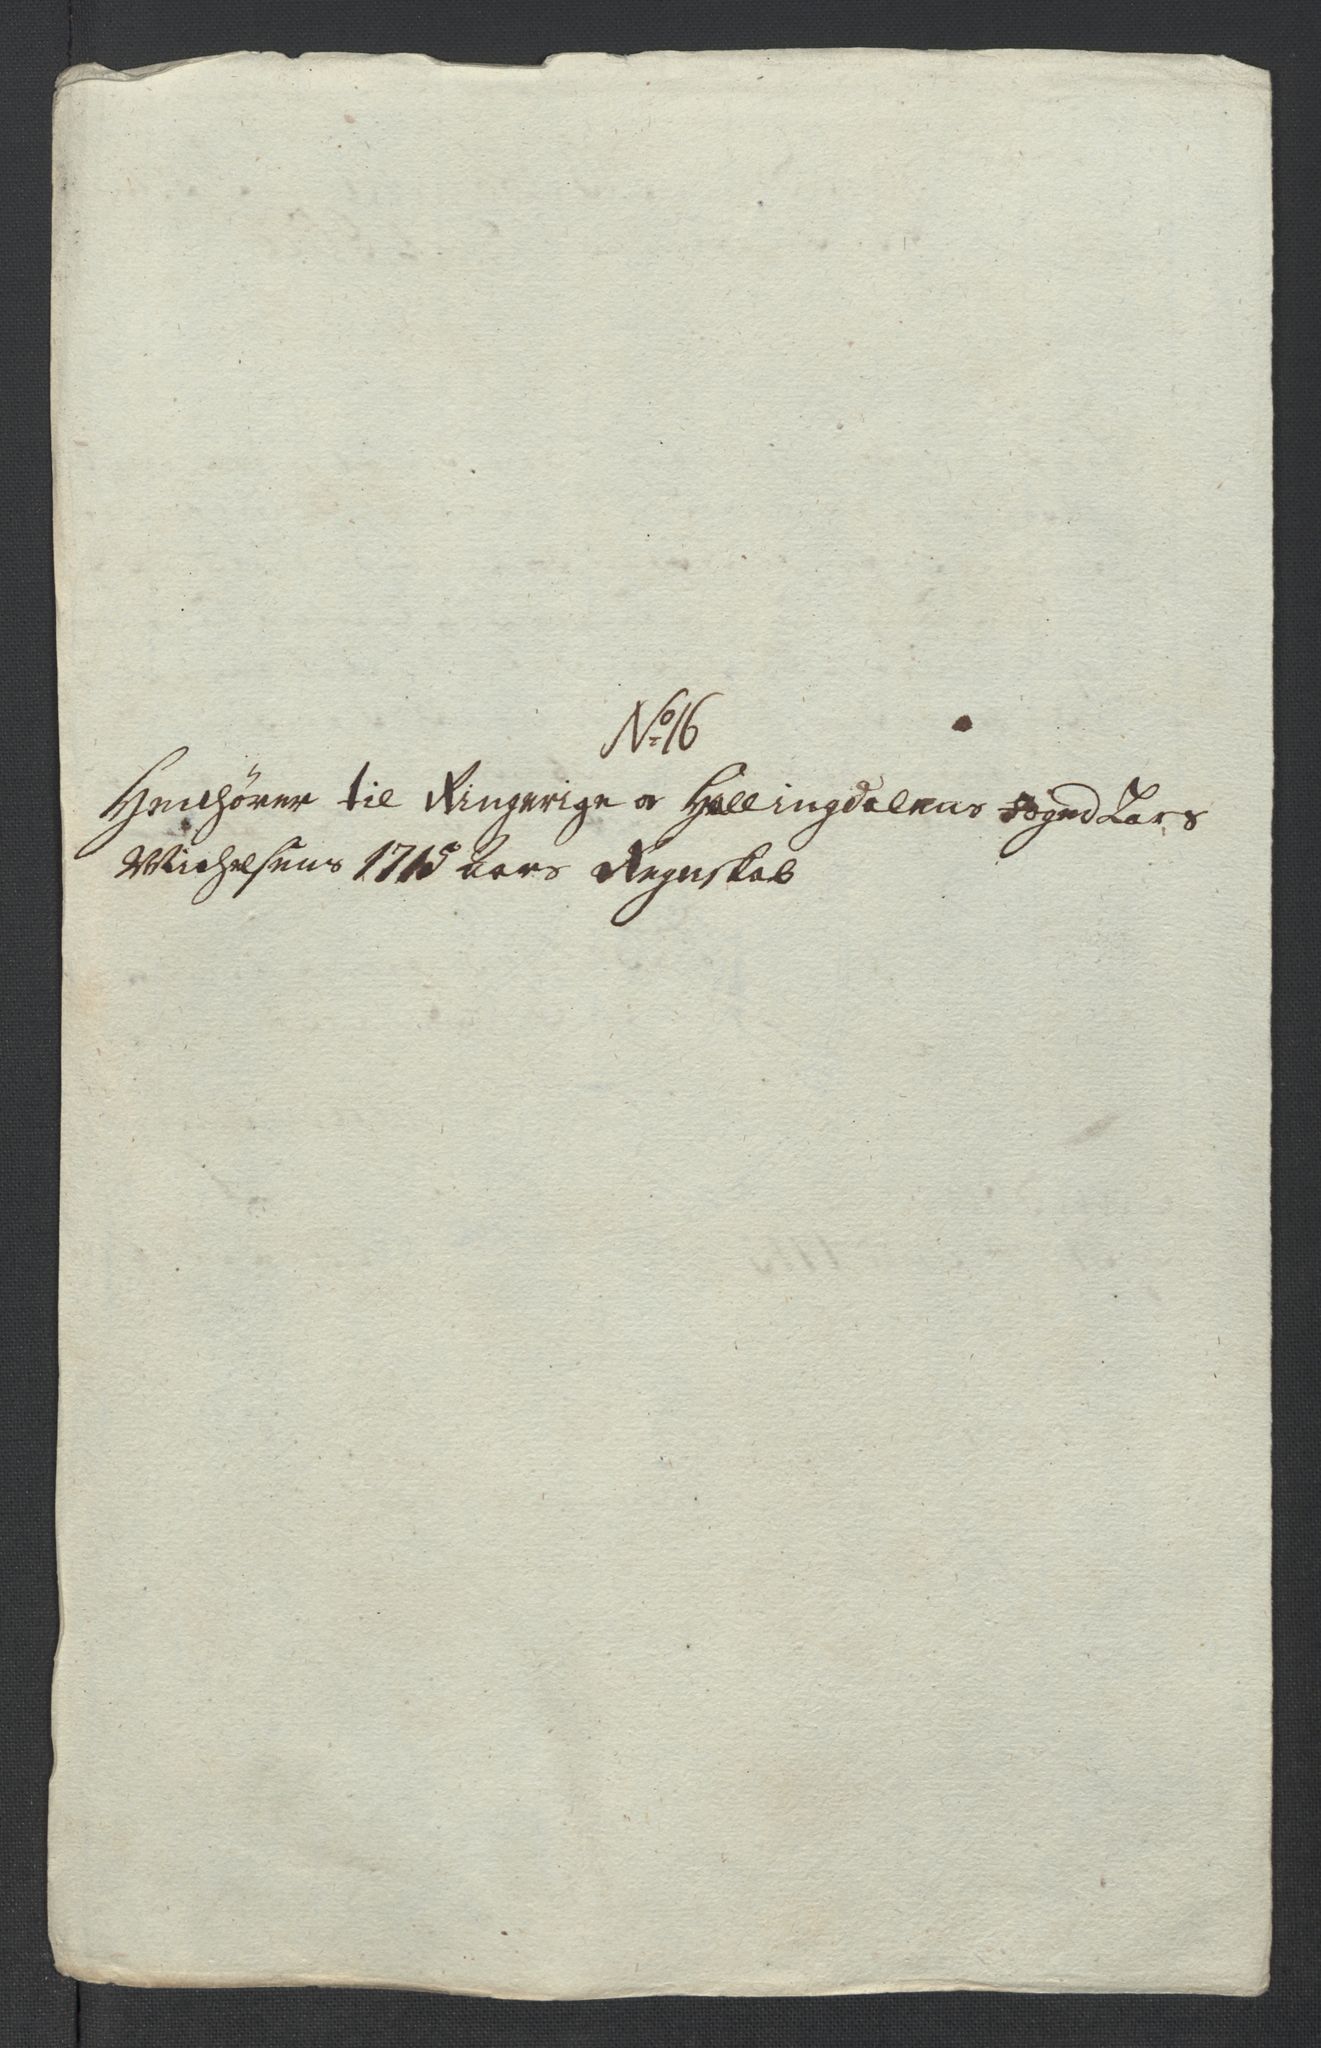 No 16
Henhører til Ringerige o Hallingdalens foged Lars
Michelsens 1715 Aars Regnskab